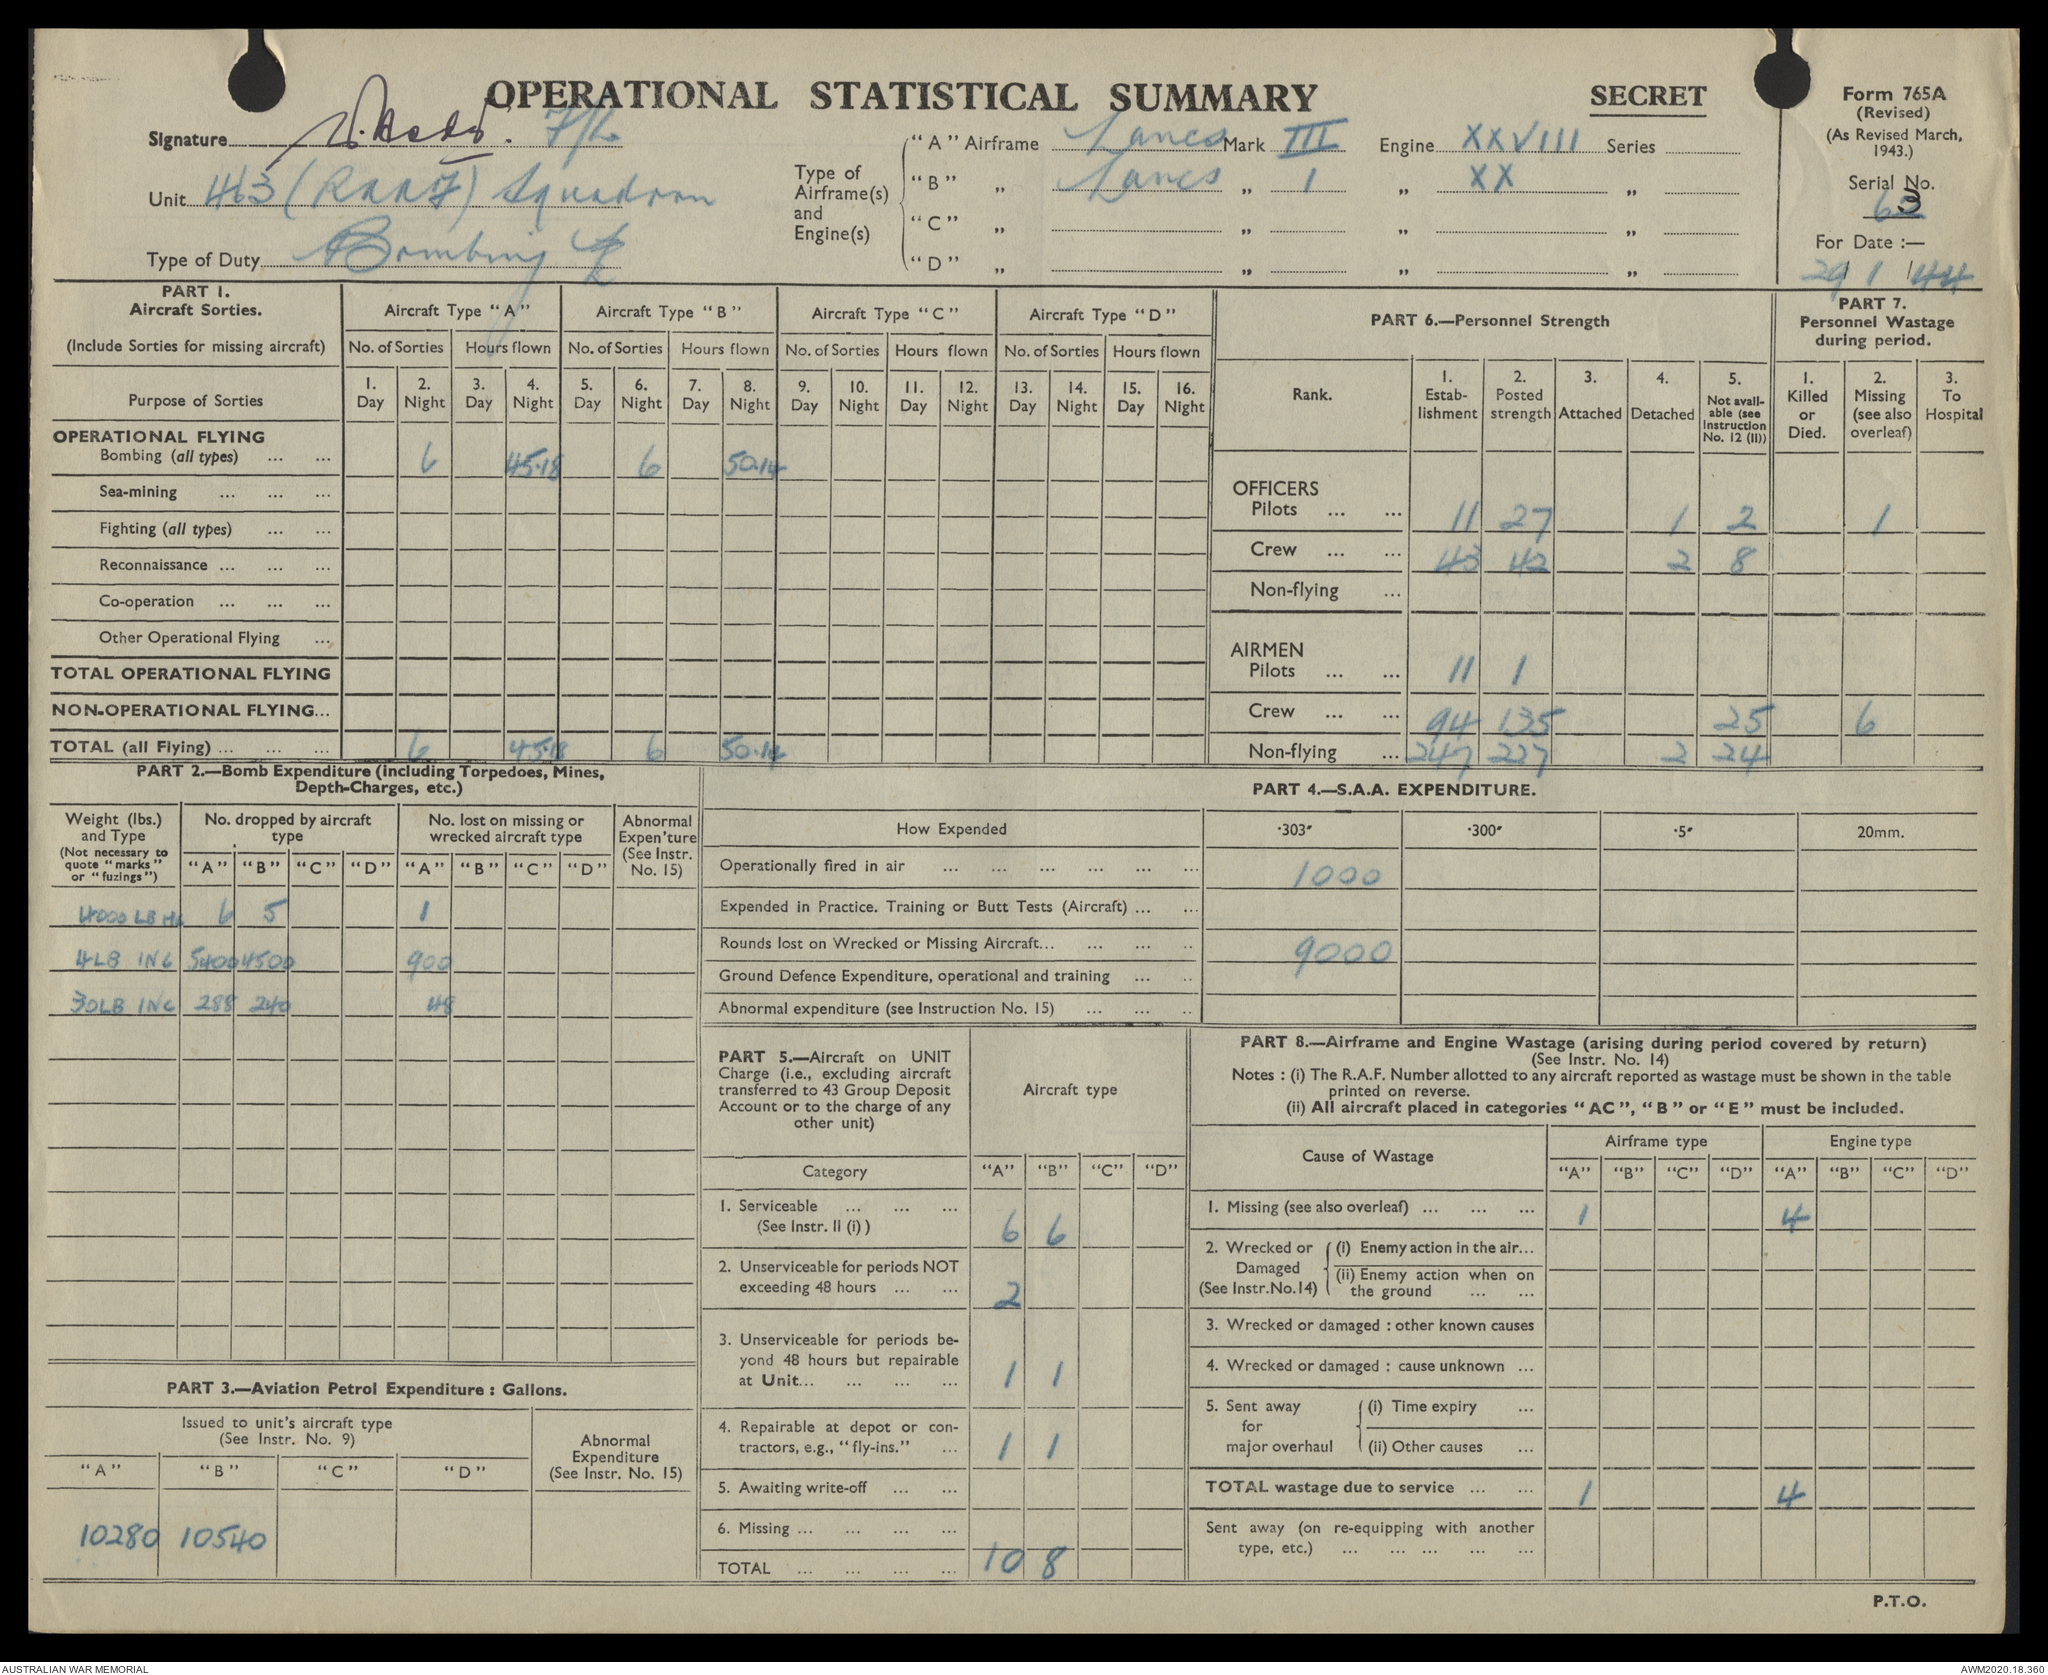 OPERATIONAL STATISTICAL SUMMARY
SECRET
Form 765A
(Revised)
(As Revised March,
1943.)
Serial No.
63
For Date :—
29/ 1 /44
Signature F/L
Unit 463 (RAAF) Squadron
Type of Duty Bombing
Type of
Airframe(s)
and
Engine(s)
"A" Airframe Lancs Mark III Engine XXVIII Series
"B" „ Lancs „ 1 „ XX „
"C" „ „ „ „
"D" „ „ „ „
PART 1.
Aircraft Sorties.
(Include Sorties for missing aircraft)
Aircraft Type "A" Aircraft Type "B" Aircraft Type "C" Aircraft Type "D"
No. of Sorties Hours flown No. of Sorties Hours flown No. of Sorties Hours flown No. of Sorties Hours flown
Purpose of Sorties
1. 2. 3. 4. 5. 6. 7. 8. 9. 10. 11. 12. 13. 14. 15. 16.
Day Night Day Night Day Night Day Night Day Night Day Night Day Night Day Night
OPERATIONAL FLYING
Bombing (all types) ... ... 6 45.18 6 50.14
Sea-mining ... ... ...
Fighting (all types) ... ...
Reconnaissance ... ... ...
Co-operation ... ... ...
Other Operational Flying ...
TOTAL OPERATIONAL FLYING
NON-OPERATIONAL FLYING...
TOTAL (all Flying) ... ... ... 6 45.18 6 50.14
PART 6.—Personnel Strength
Rank.
1.
Estab-
lishment
2.
Posted
strength
3.
Attached
4.
Detached
5.
Not avail-
able (see
Instruction
No. 12 (II))
PART 7.
Personnel Wastage
during period.
1.
Killed
or
Died.
2.
Missing
(see also
overleaf)
3.
To
Hospital
OFFICERS
Pilots ... ... 11 27 1 2 1
Crew ... ... 43 42 2 8
Non-flying ...
AIRMEN
Pilots ... ... 11 1
Crew ... ... 94 135 25 6
Non-flying ... 247 227 2 24
PART 2.—Bomb Expenditure (including Torpedoes, Mines,
Depth-Charges, etc.)
Weight (lbs.)
and Type
(Not necessary to
quote "marks"
or "fuzings")
No. dropped by aircraft
type
No. lost on missing or
wrecked aircraft type
Abnormal
Expen'ture
(See Instr.
No. 15)
"A" "B" "C" "D" "A" "B" "C" "D"
4000 LB HC 6 5 1
4LB INC 5400 4500 900
30LB INC 288 240 48
PART 3.—Aviation Petrol Expenditure : Gallons.
Issued to unit's aircraft type
(See Instr. No. 9)
Abnormal
Expenditure
(See Instr. No. 15)
"A" "B" "C" "D"
10280 10540
PART 4.—S.A.A. EXPENDITURE.
How Expended ·303" ·300" ·5" 20mm.
Operationally fired in air ... ... ... ... ... ... 1000
Expended in Practice. Training or Butt Tests (Aircraft) ... ...
Rounds lost on Wrecked or Missing Aircraft... ... ... .. 9000
Ground Defence Expenditure, operational and training ... ..
Abnormal expenditure (see Instruction No. 15) ... ... ..
PART 5.—Aircraft on UNIT
Charge (i.e., excluding aircraft
transferred to 43 Group Deposit
Account or to the charge of any
other unit)
Aircraft type
Category "A" "B" "C" "D"
1. Serviceable ... ... ...
(See Instr. II (i) ) 6 6
2. Unserviceable for periods NOT
exceeding 48 hours ... ... 2
3. Unserviceable for periods be-
yond 48 hours but repairable
at Unit... ... ... ... 1 1
4. Repairable at depot or con-
tractors, e.g., "fly-ins." ... 1 1
5. Awaiting write-off ... ...
6. Missing ... ... ... ...
TOTAL ... ... ... ... 10 8
PART 8.—Airframe and Engine Wastage (arising during period covered by return)
(See Instr. No. 14)
Notes : (i) The R.A.F. Number allotted to any aircraft reported as wastage must be shown in the table
printed on reverse.
(ii) All aircraft placed in categories "AC", "B" or "E" must be included.
Cause of Wastage
Airframe type Engine type
"A" "B" "C" "D" "A" "B" "C" "D"
1. Missing (see also overleaf) ... ... ... 1 4
2. Wrecked or
Damaged
(See Instr.No.14)
(i) Enemy action in the air...
(ii) Enemy action when on
the ground ... ...
3. Wrecked or damaged : other known causes
4. Wrecked or damaged : cause unknown ...
5. Sent away
for
major overhaul
(i) Time expiry ...
(ii) Other causes ...
TOTAL wastage due to service ... ... 1 4
Sent away (on re-equipping with another
type, etc.) ... ... ... ... ...
P.T.O.
AUSTRALIAN WAR MEMORIAL
AWM2020.18.360